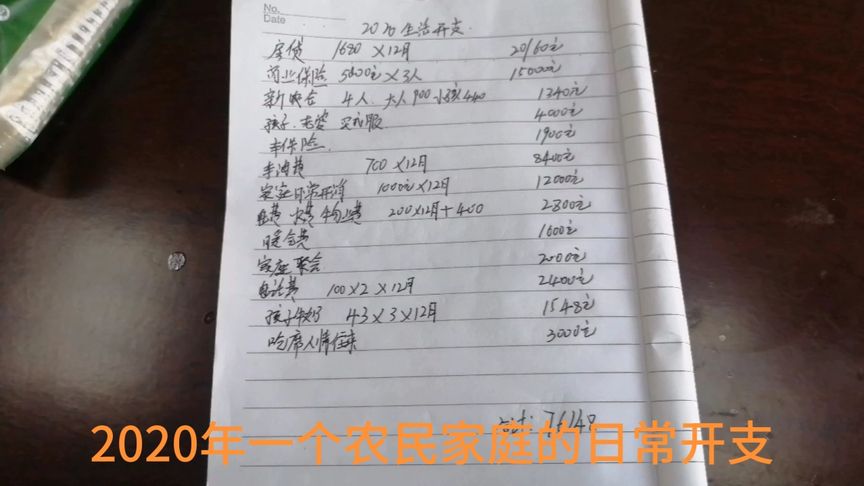 No.
Date
2020生活开支.
房贷 1680 ×12月 20160元
商业保险 5000元×3人 15000元
新农合 4人. 大人900 小孩440 1340元
孩子.老婆 买衣服 4000元
车保险. 1900元
车油费 700×12月 8400元
家庭日常开消 1000元×12月 12000元
电费 水费 物业费 200×12月+400 2800元
暖气费 1600元
家庭聚会 2000元
电话费 100×2×12月 2400元
孩子牛奶 43×3×12月 1548元
吃席人情往来 3000元
合计: 76148
2020年一个农民家庭的日常开支